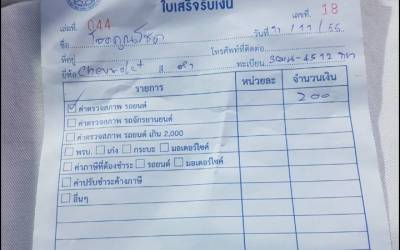 ใบเสร็จรับเงิน
เล่มที่ 044 เลขที่ 18
ชื่อ วันที่ 7 / 11 / 55
ที่อยู่ โทรศัพท์ที่ติดต่อ
ยี่ห้อ Chevrolet สี ดำ ทะเบียน 4512
รายการ หน่วยละ จำนวนเงิน
ค่าตรวจสภาพ รถยนต์ 200
ค่าตรวจสภาพ รถจักรยานยนต์
ค่าตรวจสภาพ รถยนต์ เกิน 2,000
พรบ. เก๋ง กระบะ มอเตอร์ไซค์
ค่าภาษีที่ต้องชำระ รถยนต์ มอเตอร์ไซค์
ค่าปรับชำระค้างภาษี
อื่นๆ